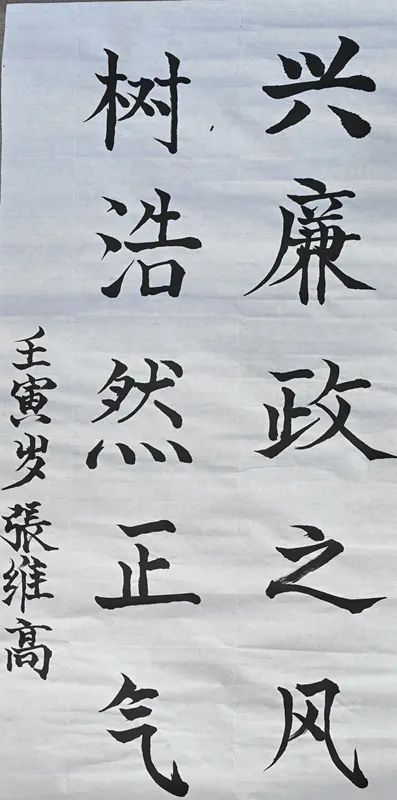 兴廉政之风
树浩然正气
壬寅岁張维高